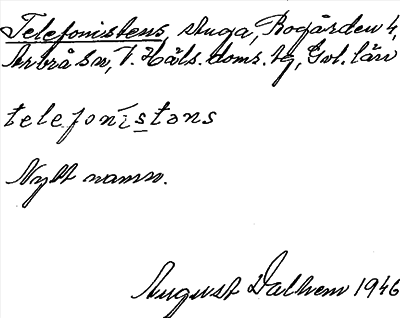 Telefonistens, stuga, Rogården 4,
Arbrå sn, V. Häls. doms. tg, Gvl. län
telefonistəns
Nytt namn.
August Dalhem 1946